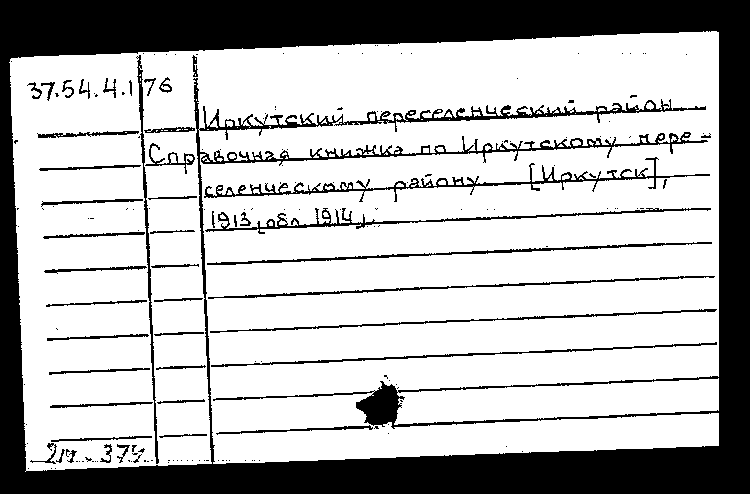 37.54.4.176
Иркутский переселенческий район.
Справочная книжка по Иркутскому пере-
селенческому району. [Иркутск],
1913 [обл. 1914].